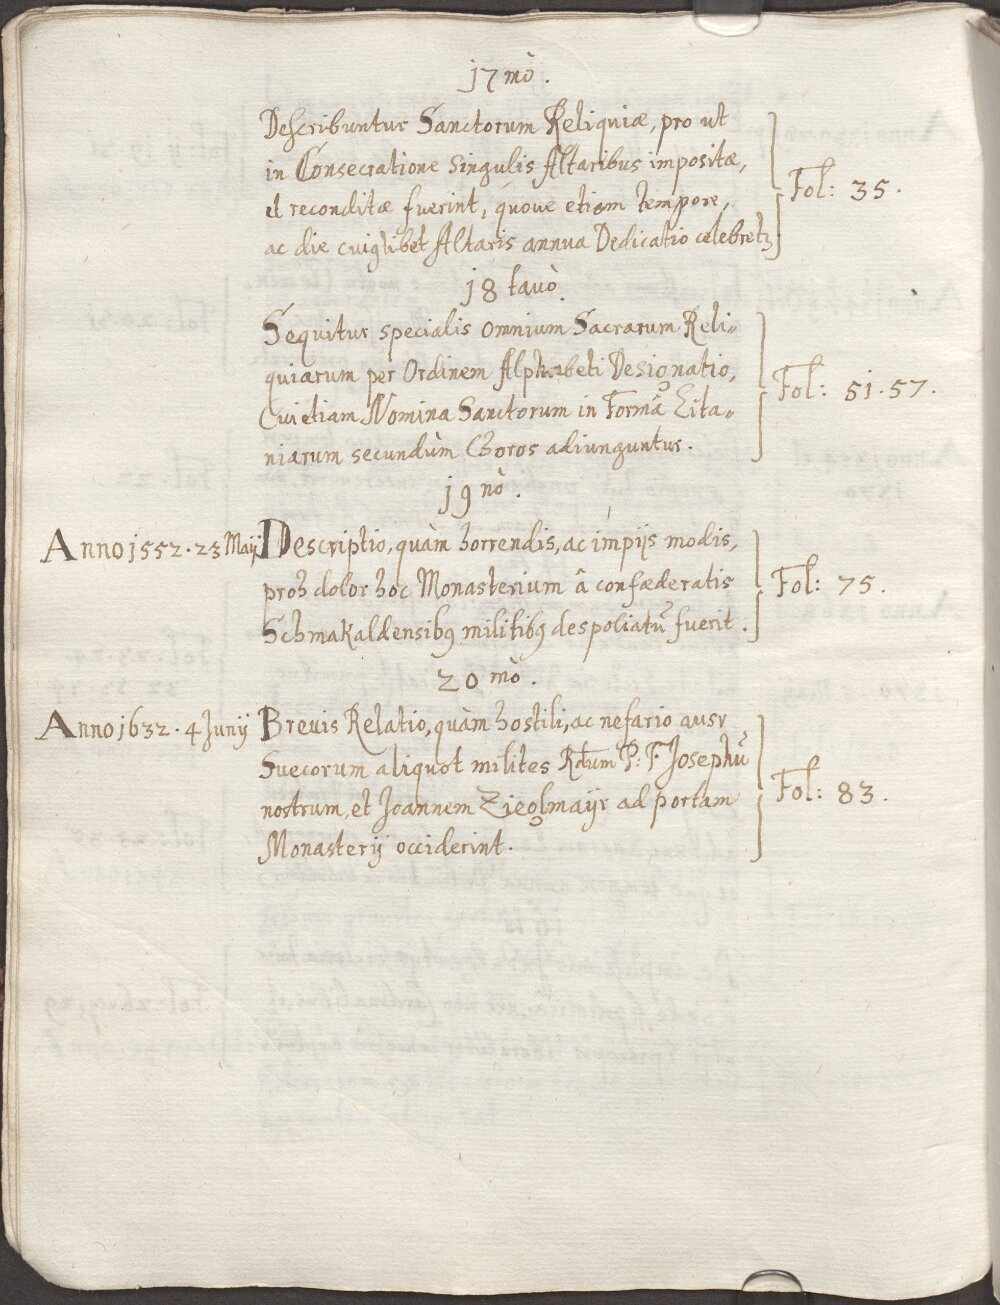 17mò.
Describuntur Sanctorum Reliquiæ, pro ut
in Consecratione singulis Altaribus impositæ,
et reconditæ fuerint, quoue etiam tempore,
ac die cuiqlibet Altaris annua Dedicatio celebretz
Fol: 35.
18 tauò.
Sequitur specialis omnium Sacrarum Reli-
quiarum per Ordinem Alphabeti Designatio,
Cui etiam Nomina Sanctorum in Formâ Lita-
niarum secundùm Choros adiunguntur.
Fol: 51. 57.
19 nò.
Anno 1552. 23 Maij
Descriptio, quàm horrendis, ac impijs modis,
proh dolor hoc Monasterium â confæderatis
Schmakaldensibq militibq despoliatũ fuerit.
Fol: 75.
20 mò.
Anno 1632. 4 Junij
Breuis Relatio, quàm hostili, ac nefario ausu
Suecorum aliquot milites Rdum P: F. Josephũ
nostrum, et Joannem Zieglmayr ad portam
Monasterij occiderint.
Fol: 83.